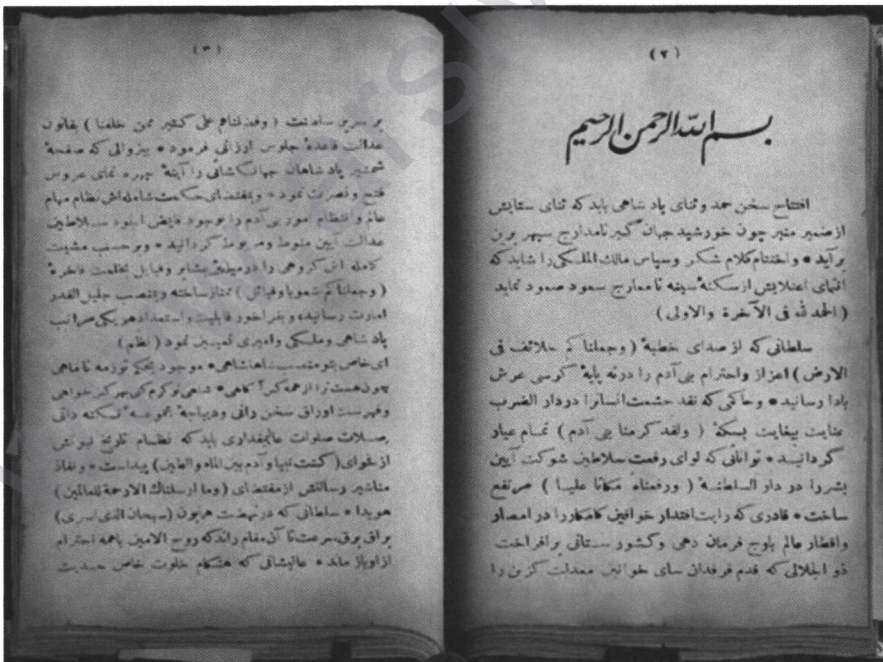 (۲)
بسم الله الرحمن الرحیم
افتتاح سخن حمد و ثنای پاد شاهی باید که ثنای ستایش
از ضمیر منیر چون خورشید جهان گیر تامدارج سپهر برین
بر آید * و اختتام کلام شکر وسپاس مالك الملكی را شاید که
انتهای اعتلایش از سکنهٔ سینه تا معارج سعود صعود نماید
(الحمد لله فی الآخرة والاولی)
سلطانی که از صدای خطبهٔ (وجعلنا کم خلائف فی
الارض) اعزاز واحترام بنی آدم را درنه پایهٔ کرسی عرش
بادا رسانید * وحاکمی که نقد حشمت انسانرا دردار الضرب
عنایت بیغایت بسکهٔ (ولقد کرمنا بنی آدم) تمام عیار
گردانید * توانائی که لوای رفعت سلاطین شوکت آیین
بشررا دو دار السلطنهٔ (ورفعناه مکانا علیا) مرتفع
ساخت * قادری که رایت اقتدار خواقین کامکاررا در امصار
واقطار عالم باوج فرمان دهی وکشور ستانی برافراخت
ذو الجلالی که قدم فرقدان سای خواقین معدلت گزین را
(۳)
بر سریر سلطنت (وفضلناهم علی کثیر ممن خلقنا) بقانون
عدالت قاعدهٔ جلوس ارزانی فرمود * بیزوالی که صفحهٔ
شمشیر پاد شاهان جهانکشائی را آینهٔ چهره نمای عروس
فتح ونصرت نمود * وبمقتضای حکمت شامله اش نظام مهام
عالم وانتظام امور بنی آدم را بوجود فایض الجود سلاطین
عدالت آیین منوط ومربوط گردانید * وبرحسب مشیت
کامله اش گروهی را درمیان عشایر وقبایل بخلعت فاخرهٔ
(وجعلناکم شعوبا وقبائل) ممتاز ساخته وبمنصب جلیل القدر
امارت رسانیده وبفراخور قابلیت واستعداد هریکی مراتب
پاد شاهی وملکی وامیری تعیین نمود (نظم)
ای خاص بتو منصب شاهنشاهی * موجود بحکم توزمه تا ماهی
چون هست ترا از همه کس آگاهی * شاهی تو کرم کنی بهر کس خواهی
وفهرست اوراق سخن رانی ودیباجهٔ مجموعهٔ نکته دانی
صلات صلوات عالیمقداری باید که نظام تاریخ نبوتش
از فحوای (کنت نبیا وآدم بین الماء والطین) پیداست * ونفاذ
مناشیر رسالتش از مقتضای (وما ارسلناك الا رحمة للعالمین)
هویدا * سلطانی که درنهضت همایون (سبحان الذی اسری)
براق برق سرعت تا آن مقام راند که روح الامین باهمه احترام
ازاوباز ماند * عالیشانی که هنگام خلوت خاص